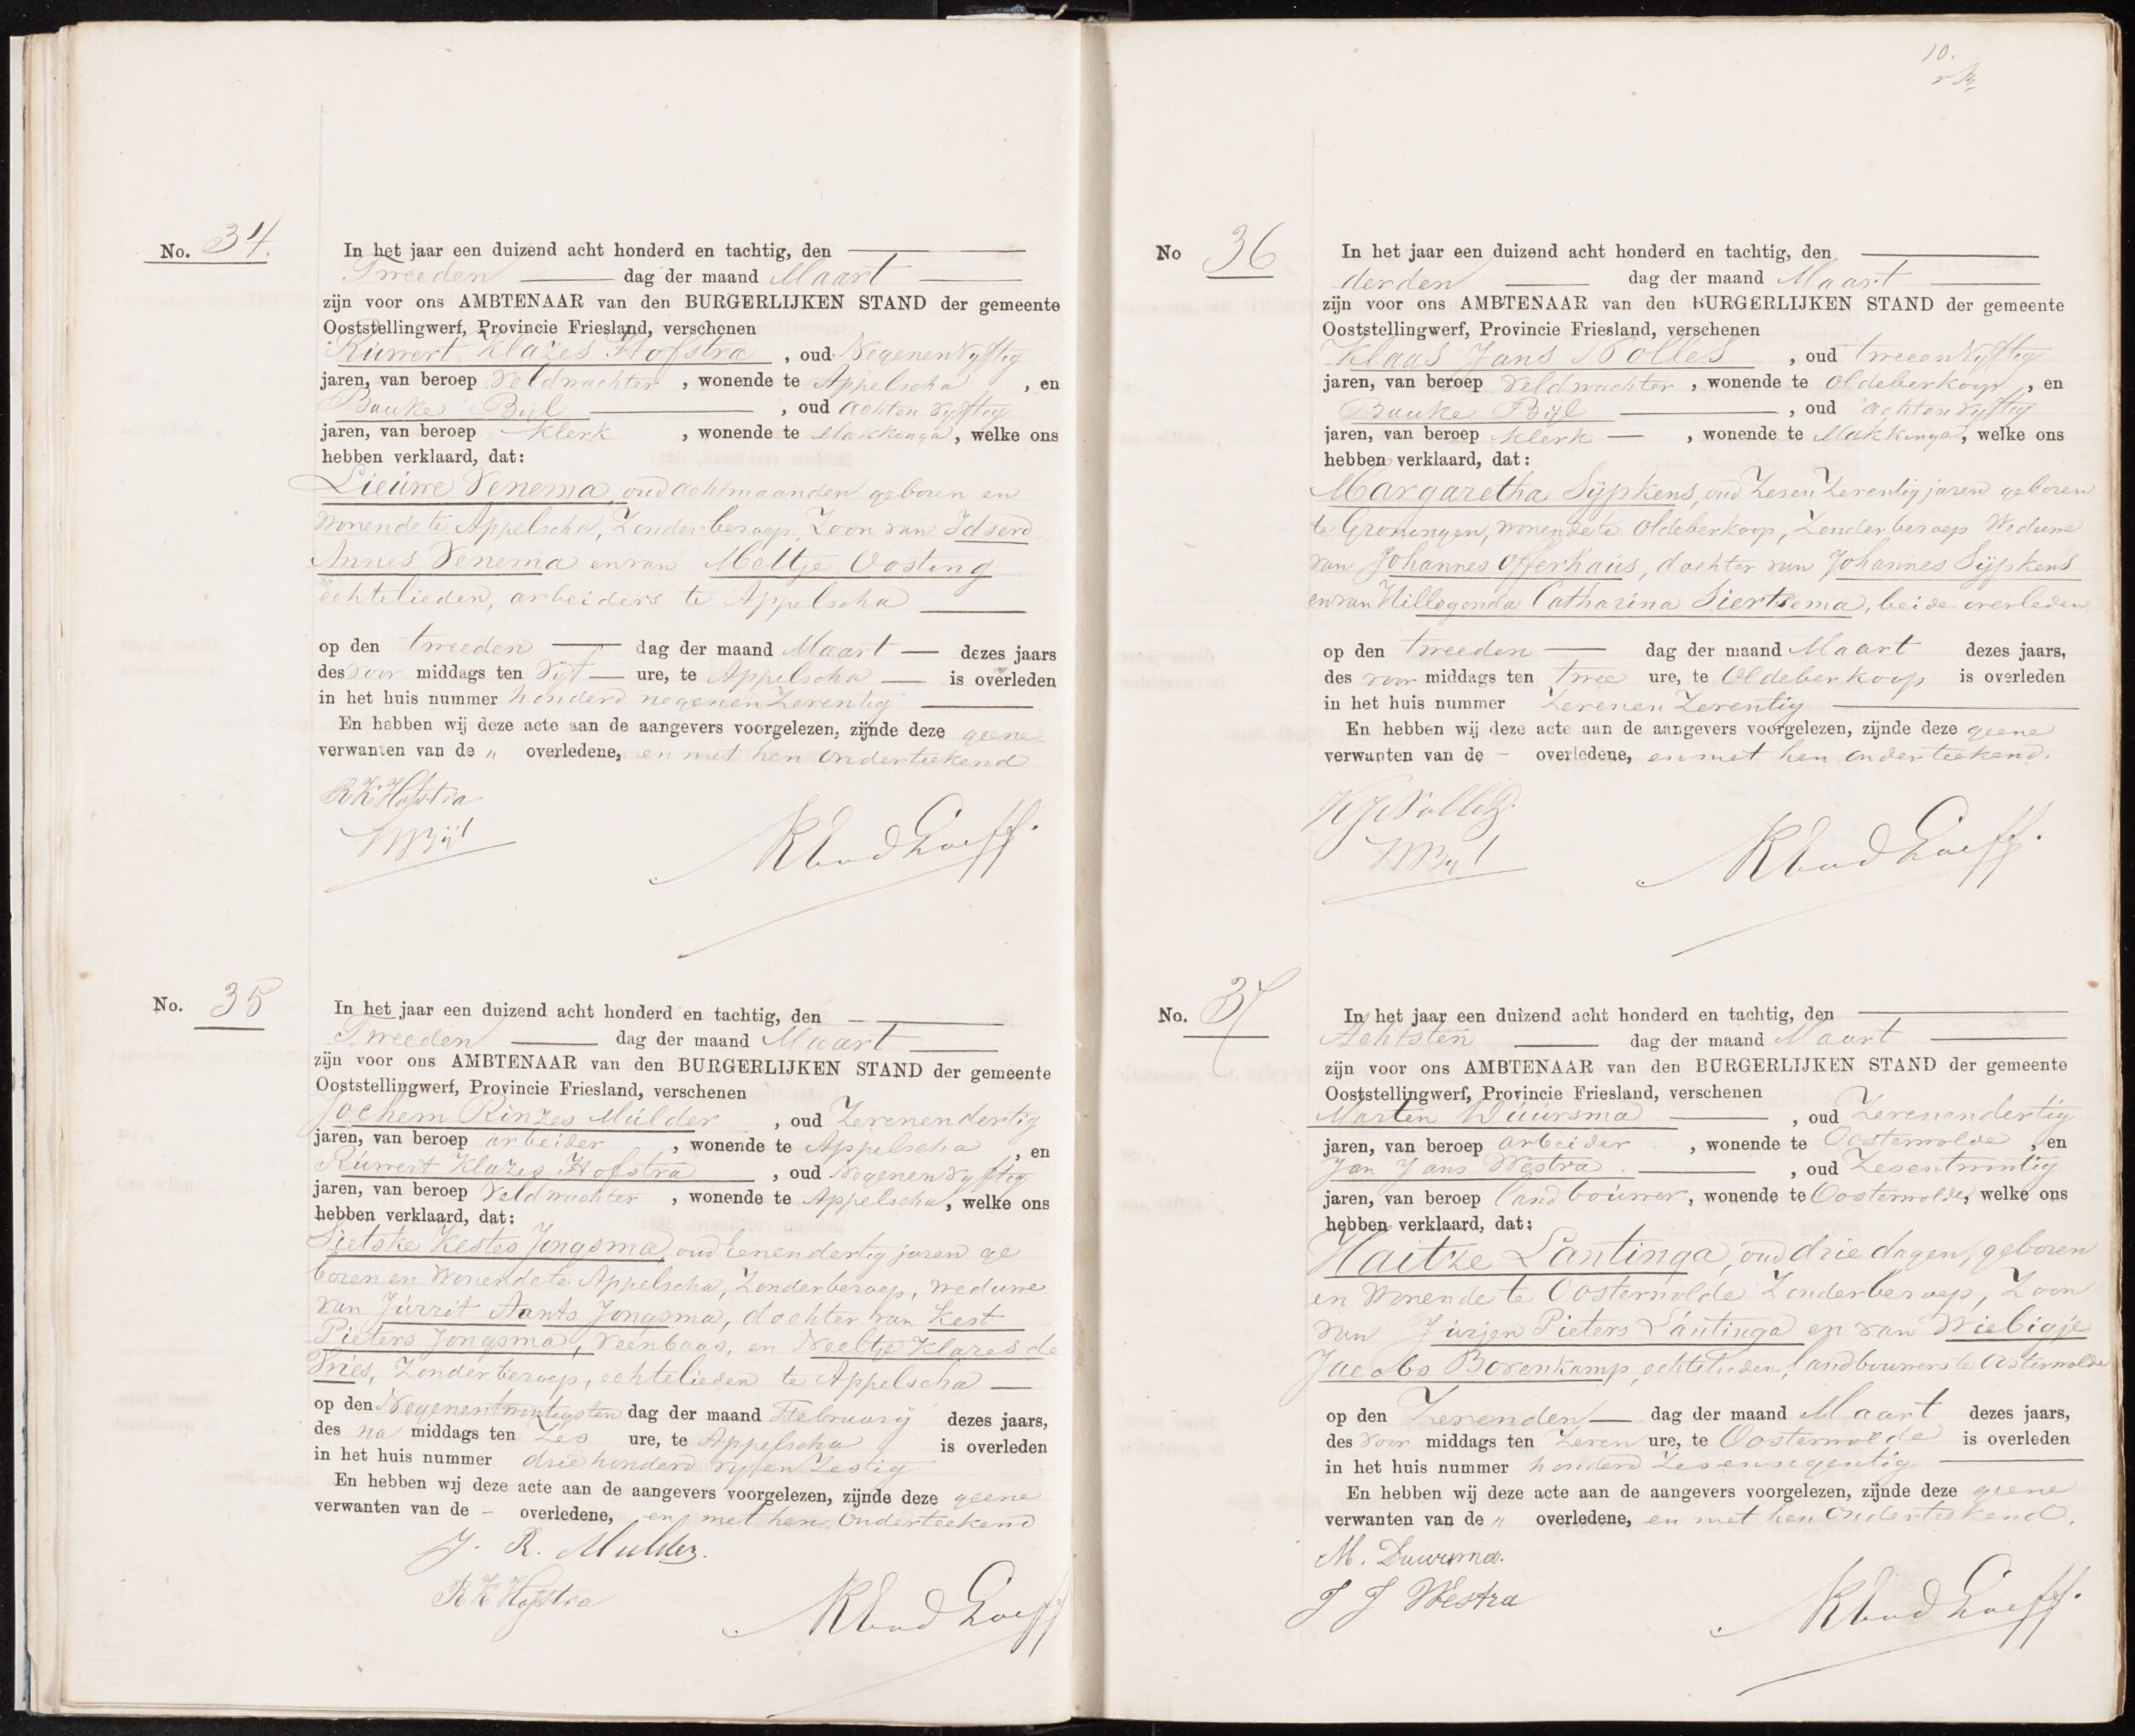 No. 34.
In het jaar een duizend acht honderd en tachtig, den
Tweeden dag der maand Maart
zijn voor ons AMBTENAAR van den BURGERLIJKEN STAND der gemeente
Ooststellingwerf, Provincie Friesland, verschenen
Ruwert Klazes Hofstra, oud Negenenvyftig
jaren, van beroep Veldwachter, wonende te Appelscha, en
Bauke Bijl, oud achtenvyftig
jaren, van beroep Klerk, wonende te Makkinga, welke ons
hebben verklaard, dat:
Lieuwe Venema, oud achtmaanden geboren en
wonende te Appelscha, Zonder beroep, Zoon van Idserd
Annes Venema en van Meltje Oosting
echtelieden, arbeiders te Appelscha
op den tweeden dag der maand Maart dezes jaars
des voor middags ten Vyf ure, te Appelscha is overleden
in het huis nummer honderd negenenzeventig
En hebben wij deze acte aan de aangevers voorgelezen, zijnde deze geene
verwanten van de „ overledene, en met hen onderteekend
RK Hofstra
Bijl
No. 35
In het jaar een duizend acht honderd en tachtig, den
Tweeden dag der maand Maart
zijn voor ons AMBTENAAR van den BURGERLIJKEN STAND der gemeente
Ooststellingwerf, Provincie Friesland, verschenen
Jochem Rinzes Mulder, oud Zevenendertig
jaren, van beroep arbeider, wonende te Appelscha, en
Ruwert Klazes Hofstra, oud Negenenvyftig
jaren, van beroep Veldwachter, wonende te Appelscha, welke ons
hebben verklaard, dat:
Sietske Kestes Jongsma, oud Eenendertig jaren ge
boren en Wonende te Appelscha, Zonder beroep, weduwe
van Jurrit Aants Jongsma, dochter van Kest
Pieters Jongsma, Veenbaas, en Neeltje Klazes de
Vries, Zonder beroep, echtelieden te Appelscha
op den Negenentwintigsten dag der maand February dezes jaars,
des na middags ten Zes ure, te Appelscha is overleden
in het huis nummer driehonderd vyfenzestig
En hebben wij deze acte aan de aangevers voorgelezen, zijnde deze geene
verwanten van de - overledene, en met hen onderteekend
J. R. Mulder.
RK Hofstra
10.
No 36
In het jaar een duizend acht honderd en tachtig, den
derden dag der maand Maart
zijn voor ons AMBTENAAR van den BURGERLIJKEN STAND der gemeente
Ooststellingwerf, Provincie Friesland, verschenen
Klaas Jans Nolles, oud tweeenvyftig
jaren, van beroep Veldwachter, wonende te Oldeberkoop, en
Bauke Bijl, oud achtenvyftig
jaren, van beroep Klerk, wonende te Makkinga, welke ons
hebben verklaard, dat:
Margaretha Sijpkens, oud Zesenzeventig jaren geboren
te Groningen, wonende te Oldeberkoop, Zonder beroep Weduwe
van Johannes Offerhaus, dochter van Johannes Sijpkens
en van Hillegonda Catharina Siertsema, beide overleden
op den tweeden dag der maand Maart dezes jaars,
des voor middags ten twee ure, te Oldeberkoop is overleden
in het huis nummer Zevenenzeventig
En hebben wij deze acte aan de aangevers voorgelezen, zijnde deze geene
verwanten van de - overledene, en met hen onderteekend.
KJ Nolles
Bijl
No. 37
In het jaar een duizend acht honderd en tachtig, den
Achtsten dag der maand Maart
zijn voor ons AMBTENAAR van den BURGERLIJKEN STAND der gemeente
Ooststellingwerf, Provincie Friesland, verschenen
Marten Duursma, oud Zevenendertig
jaren, van beroep arbeider, wonende te Oosterwolde, en
Jan Jans Westra, oud Zesentwintig
jaren, van beroep landbouwer, wonende te Oosterwolde, welke ons
hebben verklaard, dat:
Haitze Santinga, oud drie dagen, geboren
en Wonende te Oosterwolde Zonder beroep, Zoon
van Jurjen Pieters Santinga en van Wiebigje
Jacobs Bovenkamp, echtelieden, landbouwers te Oosterwolde
op den Zevenden dag der maand Maart dezes jaars,
des voor middags ten Zeven ure, te Oosterwolde is overleden
in het huis nummer honderd Zesennegentig
En hebben wij deze acte aan de aangevers voorgelezen, zijnde deze geene
verwanten van de „ overledene, en met hen onderteekend.
M. Duursma.
J J Westra